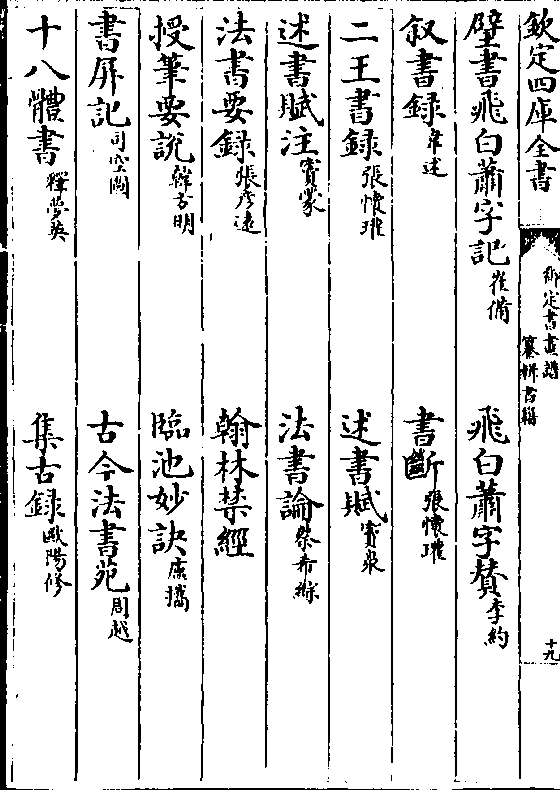 欽定四庫全書
御定書畫譜
纂輯書籍
十九
壁書飛白蕭字記崔備　飛白蕭字賛李約
叙書録韋述　書斷張懷瓘
二王書録張懷瓘　述書賦竇泉
述書賦注竇蒙　法書論蔡希綜
法書要録張彦逺　翰林禁經
授筆要說韓方明　臨池妙訣盧攜
書屏記司空圖　古今法書苑周越
十八體書釋夢英　集古録歐陽修